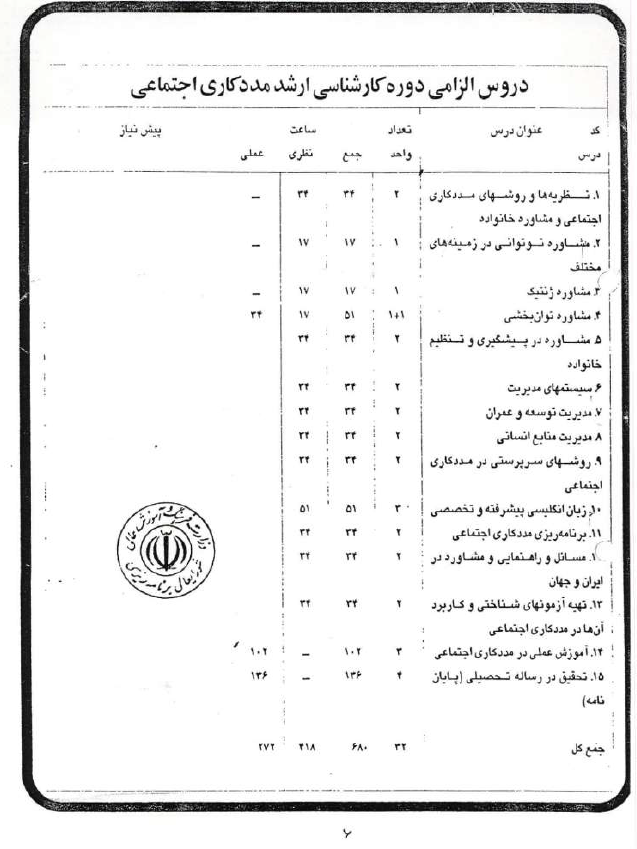 دروس الزامی دوره کارشناسی ارشد مددکاری اجتماعی
کد عنوان درس تعداد ساعت پیش نیاز
درس واحد جمع نظری عملی
۱. تـــظریه‌ها و روشـــهای مـددکاری ۲ ۳۴ ۳۴ ــ
اجتماعی و مشاوره خانواده
۲. مشـــاوره نـوتوانی در زمینه‌های ۱ ۱۷ ۱۷ ــ
مختلف
۳. مشاوره ژنتیک ۱ ۱۷ ۱۷ ــ
۴. مشاوره توان‌بخشی ۱+۱ ۵۱ ۱۷ ۳۴
۵. مشـــاوره در پــیشگیری و تــنظیم ۲ ۳۴ ۳۴
خانواده
۶. سیستمهای مدیریت ۲ ۳۴ ۳۴
۷. مدیریت توسعه و عمران ۲ ۳۴ ۳۴
۸. مدیریت منابع انسانی ۲ ۳۴ ۳۴
۹. روشــهای سـرپرستی در مـددکاری ۲ ۳۴ ۳۴
اجتماعی
۱۰. زبان انگلیسی پیشرفته و تخصصی ۳ ۵۱ ۵۱
۱۱. برنامه‌ریزی مددکاری اجتماعی ۲ ۳۴ ۳۴
۱. مسـائل و راهـنمایی و مشاوره در ۲ ۳۴ ۳۴
ایران و جهان
۱۳. تهیه آزمونهای شناختی و کاربرد ۲ ۳۴ ۳۴
آن‌ها در مددکاری اجتماعی
۱۴. آموزش عملی در مددکاری اجتماعی ۳ ۱۰۲ ــ ۱۰۲
۱۵. تحقیق در رساله تـحصیلی (پایان ۴ ۱۳۶ ــ ۱۳۶
نامه)
جمع کل ۳۲ ۶۸۰ ۴۱۸ ۲۷۲
وزارت فرهنگ و آموزش عالی
شورایعالی برنامه‌ریزی
۶